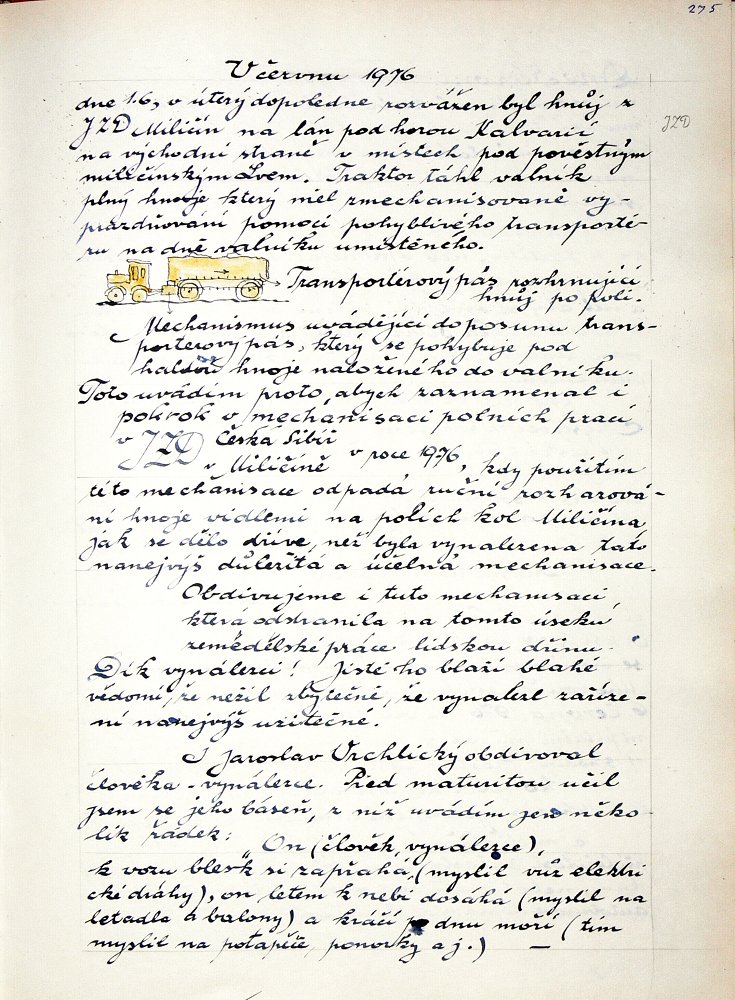 275
V červnu 1976
dne 1.6, v úterý dopoledne rozvážen byl hnůj z
JZD Miličín na lán pod horou Kalvarií
JZD
na východní straně v místech pod pověstným
miličínským Lvem. Traktor táhl valník
plný hnoje který měl zmechanisované vy-
prazdňování pomocí pohyblivého transporté-
ru na dně valníku umístěného.
Transportérový pás rozhrnující
hnůj po poli.
Mechanismus uvádějící do posunu trans-
porterový pás, který se pohybuje pod
haldou hnoje naloženého do valníku.
Toto uvádím proto, abych zaznamenal i
pokrok v mechanisaci polních prací
v JZD Česká Sibiř
v Miličíně v roce 1976, kdy použitím
této mechanisace odpadá ruční rozharová-
ní hnoje vidlemi na polích kol Miličína,
jak se dělo dříve, než byla vynalezena tato
nanejvýš důležitá a účelná mechanisace.
Obdivujeme i tuto mechanisaci,
která odstranila na tomto úseku
zemědělské práce lidskou dřinu.
Dík vynálezci! Jistě ho blaží blahé
vědomí, že nežil zbytečně, že vynalezl zaříze-
ní nanejvýš užitečné.
I Jaroslav Vrchlický obdivoval
člověka - vynálezce. Před maturitou učil
jsem se jeho báseň, z níž uvádím jen něko-
lik řádek:
„On (člověk, vynálezce),
k vozu blesk si zapřahá, (myslil vůz elektri
cké dráhy), on letem k nebi dosáhá (myslil na
letadla a balony) a kráčí po dnu moří (tím
myslil na potapěče, ponorky a j.) —